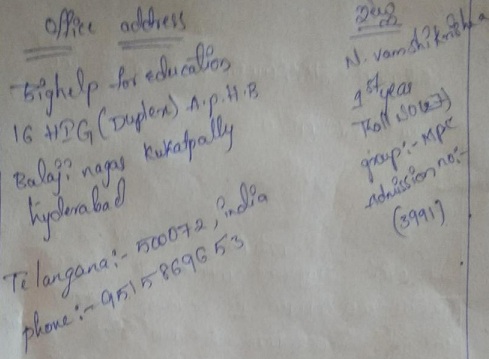 office address
Bighelp for education
16 HIG (Duplex) A.p.H.B
Balaji nagar kukatpally
hyderabad
Telangana:- 500072, india
phone:- 9515869653
N. vamshi krishna
1st year
Roll no (27)
group:- MPC
Admission no:-
(3991)